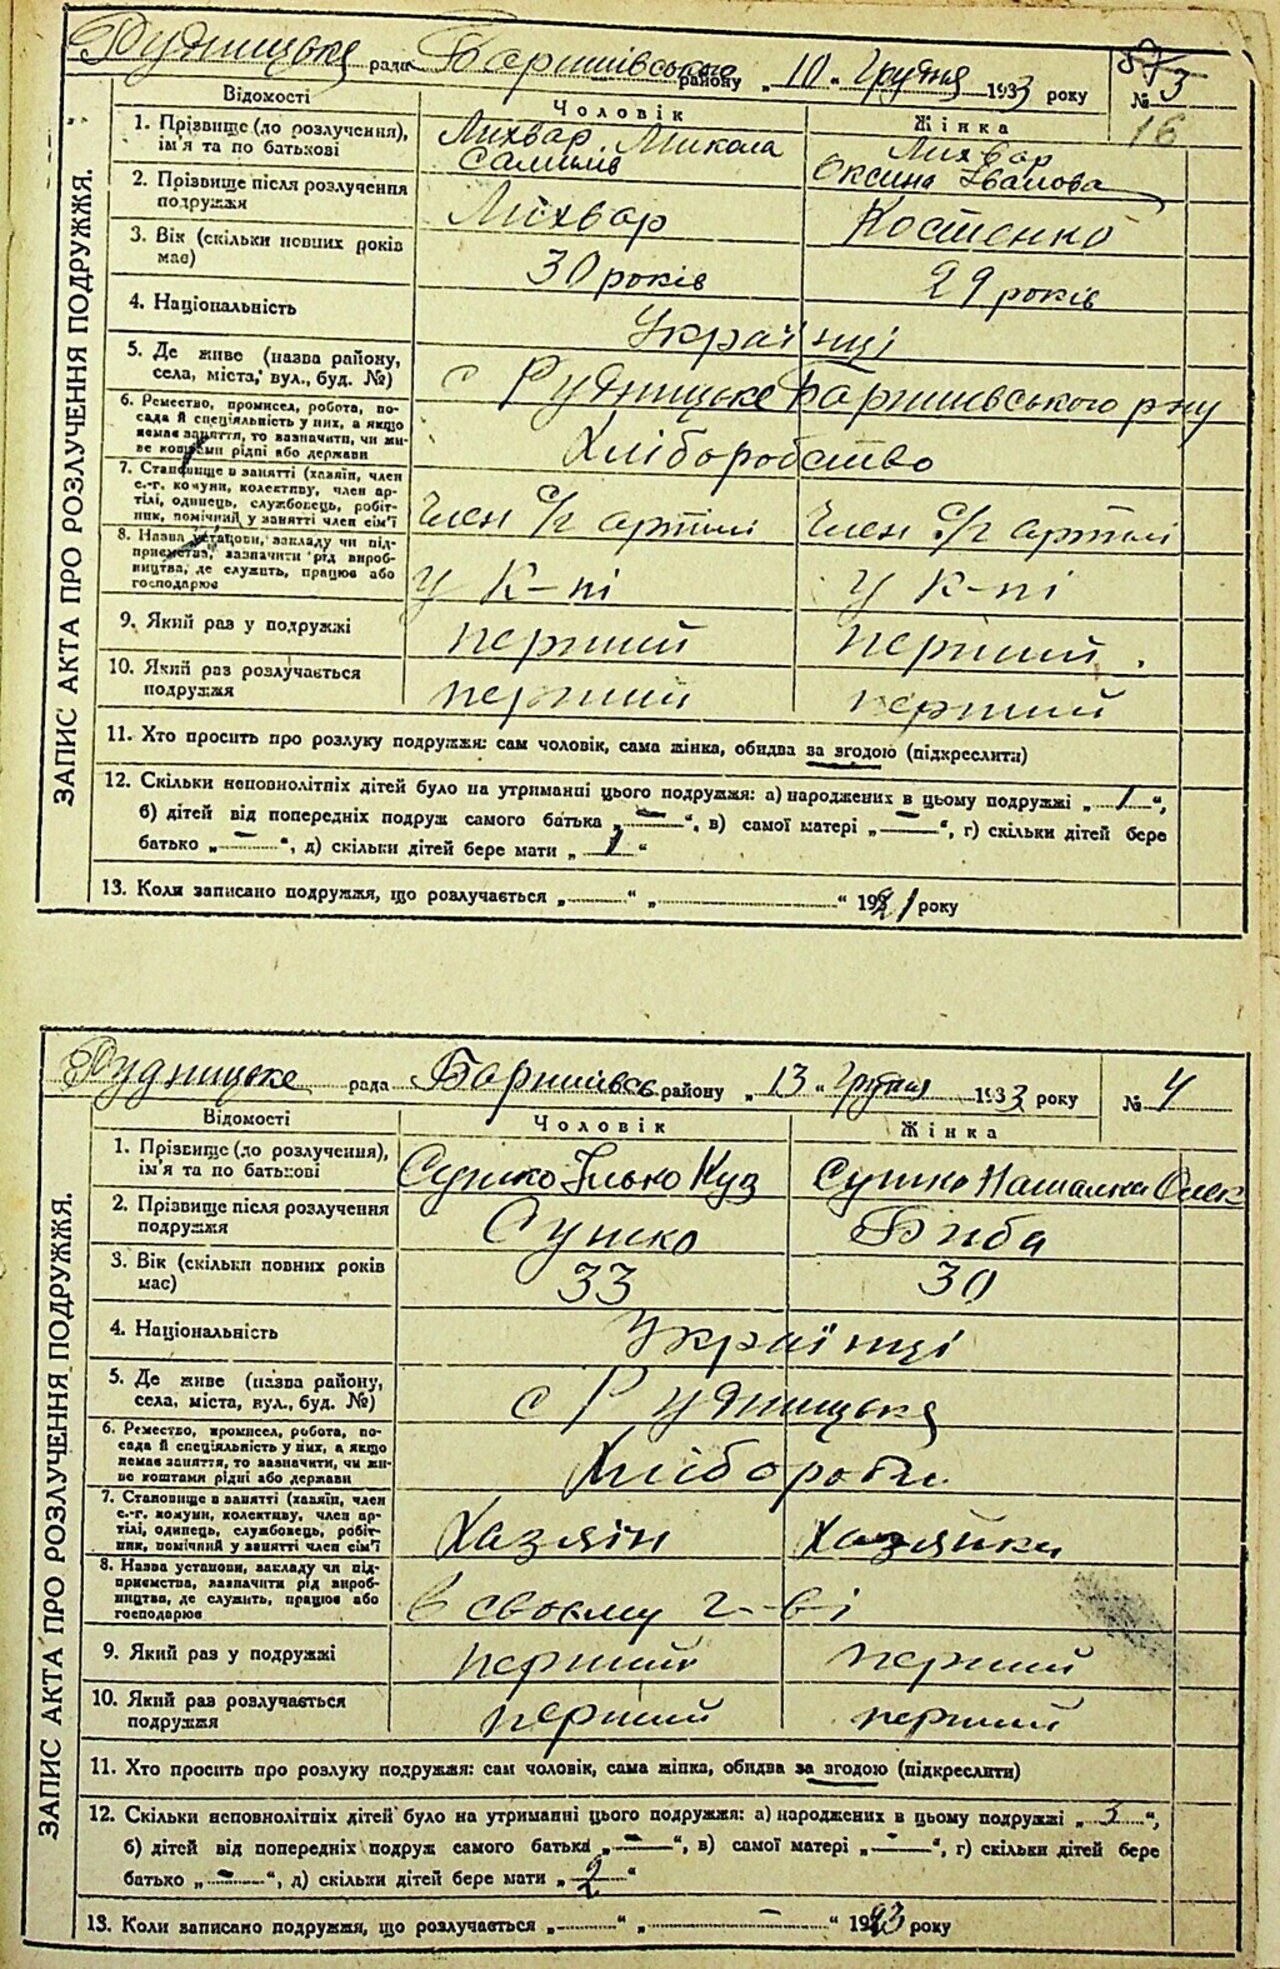 Рудницьке рада Баришівського району „10" Грудня 1933 року № 3
16
ЗАПИС АКТА ПРО РОЗЛУЧЕННЯ ПОДРУЖЖЯ.
Відомості Чоловік Жінка
1. Прізвище (до розлучення), Лихвар Микола Лихвар
ім'я та по батькові Оксина Іванова
2. Прізвище після розлучення
подружжя Лихвар Костенко
3. Вік (скільки повних років
має) 30 років 29 років
4. Національність Українці
5. Де живе (назва району,
села, міста, вул., буд. №) с Рудницьке Баришевського р-ну
6. Ремество, промисел, робота, по-
сада й спеціяльність у них, а якщо
немає заняття, то зазначити, чи жи-
ве коштами рідні або держави Хліборобство
7. Становище в занятті (хазяїн, член
с.-г. комуни, колективу, член ар-
тілі, одинець, службовець, робіт-
ник, помічний у занятті член сім'ї Член с/г артілі Член с/г артілі
8. Назва установи, закладу чи під-
приємства, зазначити рід вироб-
ництва, де служить, працює або
господарює у к-пі у к-пі
9. Який раз у подружжі перший перший
10. Який раз розлучається
подружжя перший перший
11. Хто просить про розлуку подружжя: сам чоловік, сама жінка, обидва за згодою (підкреслити)
12. Скільки неповнолітніх дітей було на утриманні цього подружжя: а) народжених в цьому подружжі „1",
б) дітей від попередніх подруж самого батька „—", в) самої матері „—", г) скільки дітей бере
батько „—", д) скільки дітей бере мати „1"
13. Коли записано подружжя, що розлучається „ " „ " 1921 року
Рудницьке рада Баришівськ району „13" Грудня 1933 року № 4
ЗАПИС АКТА ПРО РОЗЛУЧЕННЯ ПОДРУЖЖЯ.
Відомості Чоловік Жінка
1. Прізвище (до розлучення),
ім'я та по батькові Сушко Ілько Куз Сушко Наталка Олек
2. Прізвище після розлучення
подружжя Сушко Биба
3. Вік (скільки повних років
має) 33 30
4. Національність Українці
5. Де живе (назва району,
села, міста, вул., буд. №) с Рудницьке
6. Ремество, промисел, робота, по-
сада й спеціяльність у них, а якщо
немає заняття, то зазначити, чи жи-
ве коштами рідні або держави
7. Становище в занятті (хазяїн, член
с.-г. комуни, колективу, член ар-
тілі, одинець, службовець, робіт-
ник, помічний у занятті член сім'ї Хазяїн Хазяйка
8. Назва установи, закладу чи під-
приємства, зазначити рід вироб-
ництва, де служить, працює або
господарює в своєму г-ві
9. Який раз у подружжі перший перший
10. Який раз розлучається
подружжя перший перший
11. Хто просить про розлуку подружжя: сам чоловік, сама жінка, обидва за згодою (підкреслити)
12. Скільки неповнолітніх дітей було на утриманні цього подружжя: а) народжених в цьому подружжі „3",
б) дітей від попередніх подруж самого батька „—", в) самої матері „—", г) скільки дітей бере
батько „—", д) скільки дітей бере мати „2"
13. Коли записано подружжя, що розлучається „ " „ — " 1923 року